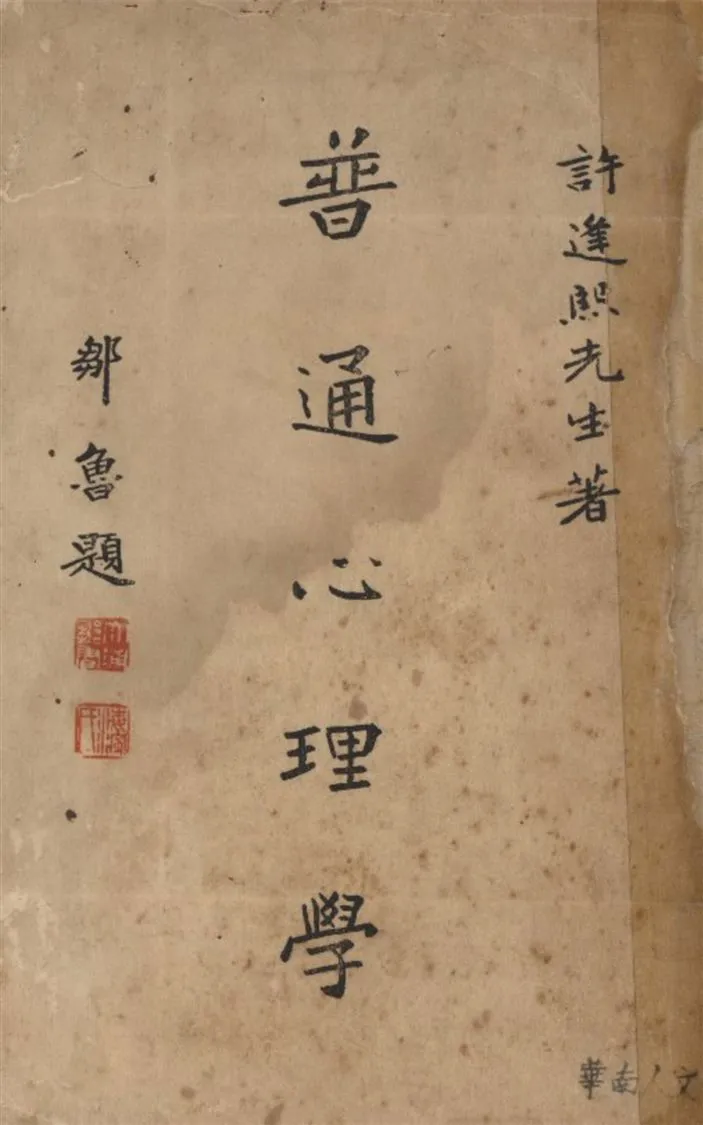 許逢熙先生著
普通心理學
鄒魯題
華南
文